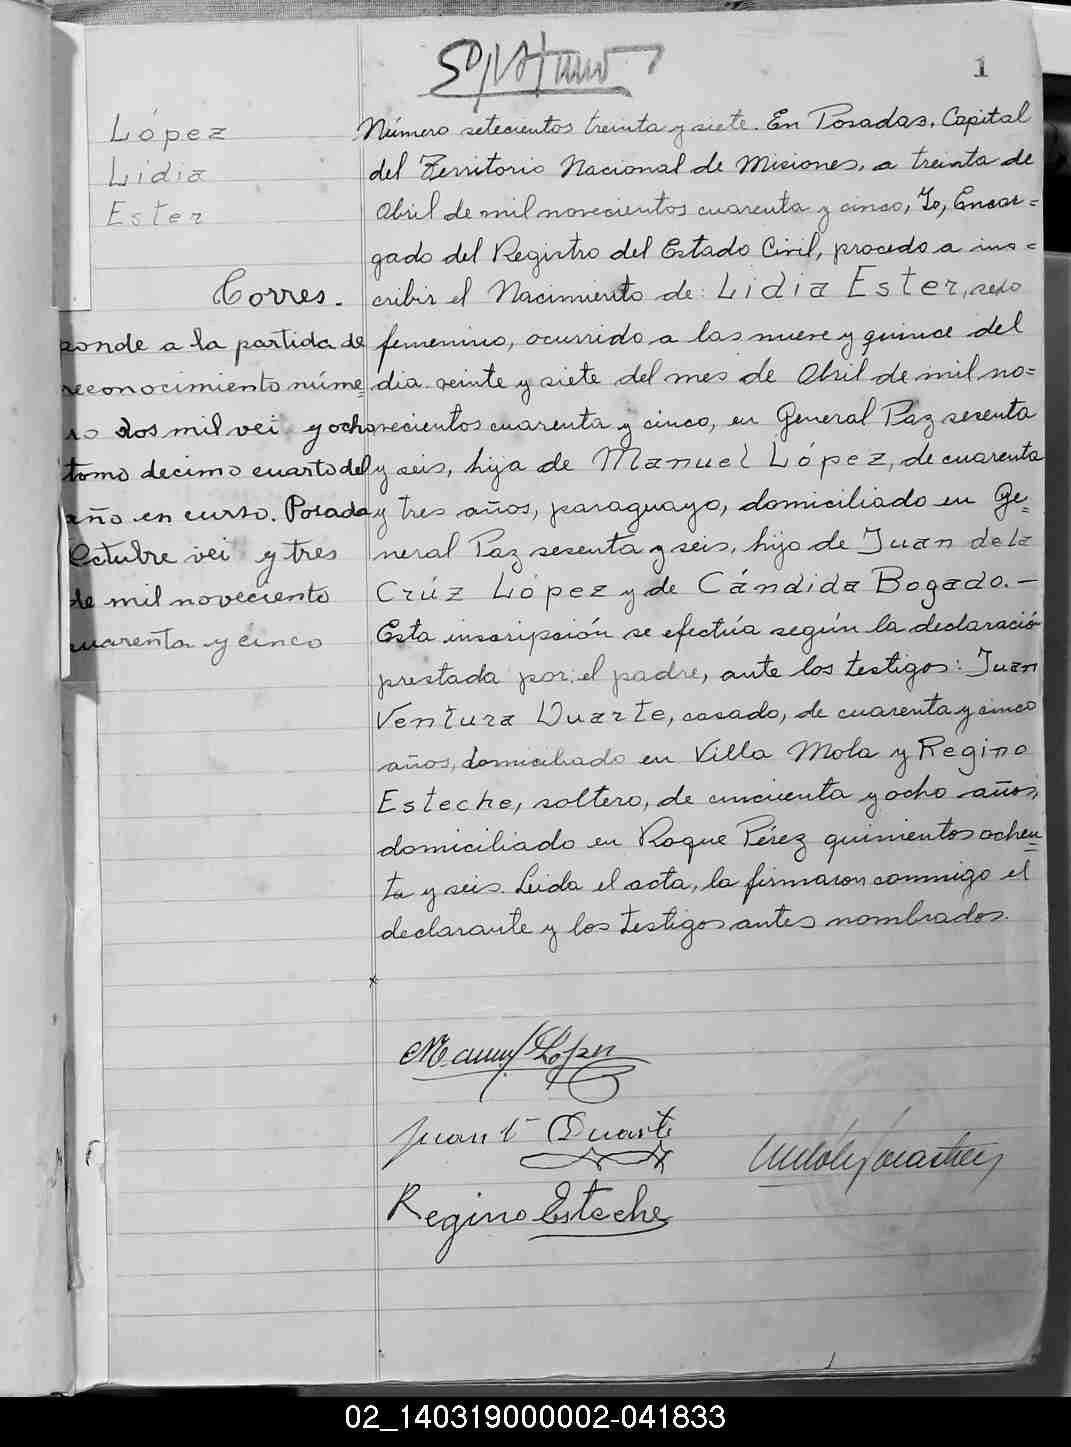 1
López
Lidia
Ester
Corres.
ponde a la partida de
reconocimiento núme=
ro dos mil vei y ocho
tomo decimo cuarto del
año en curso. Posadas
Octubre vei y tres
de mil noveciento
cuarenta y cinco
Número setecientos treinta y siete. En Posadas, Capital
del Territorio Nacional de Misiones, a treinta de
Abril de mil novecientos cuarenta y cinco, Yo, Encar=
gado del Registro del Estado Civil, procedo a ins=
cribir el Nacimiento de: Lidia Ester, sexo
femenino, ocurrido a las nueve y quince del
día veinte y siete del mes de Abril de mil no=
vecientos cuarenta y cinco, en General Paz sesenta
y seis, hija de Manuel López, de cuarenta
y tres años, paraguayo, domiciliado en Ge=
neral Paz sesenta y seis, hijo de Juan de la
Crúz López y de Cándida Bogado.—
Esta inscripsión se efectúa según la declaració
prestada por el padre, ante los testigos: Juan
Ventura Duarte, casado, de cuarenta y cinco
años, domiciliado en Villa Mola y Regino
Esteche, soltero, de cincuenta y ocho años,
domiciliado en Roque Pérez quinientos ochen=
ta y seis. Leida el acta, la firmaron conmigo el
declarante y los testigos antes nombrados.
Manuel López
Juan V Duarte
Regino Esteche
02_140319000002-041833